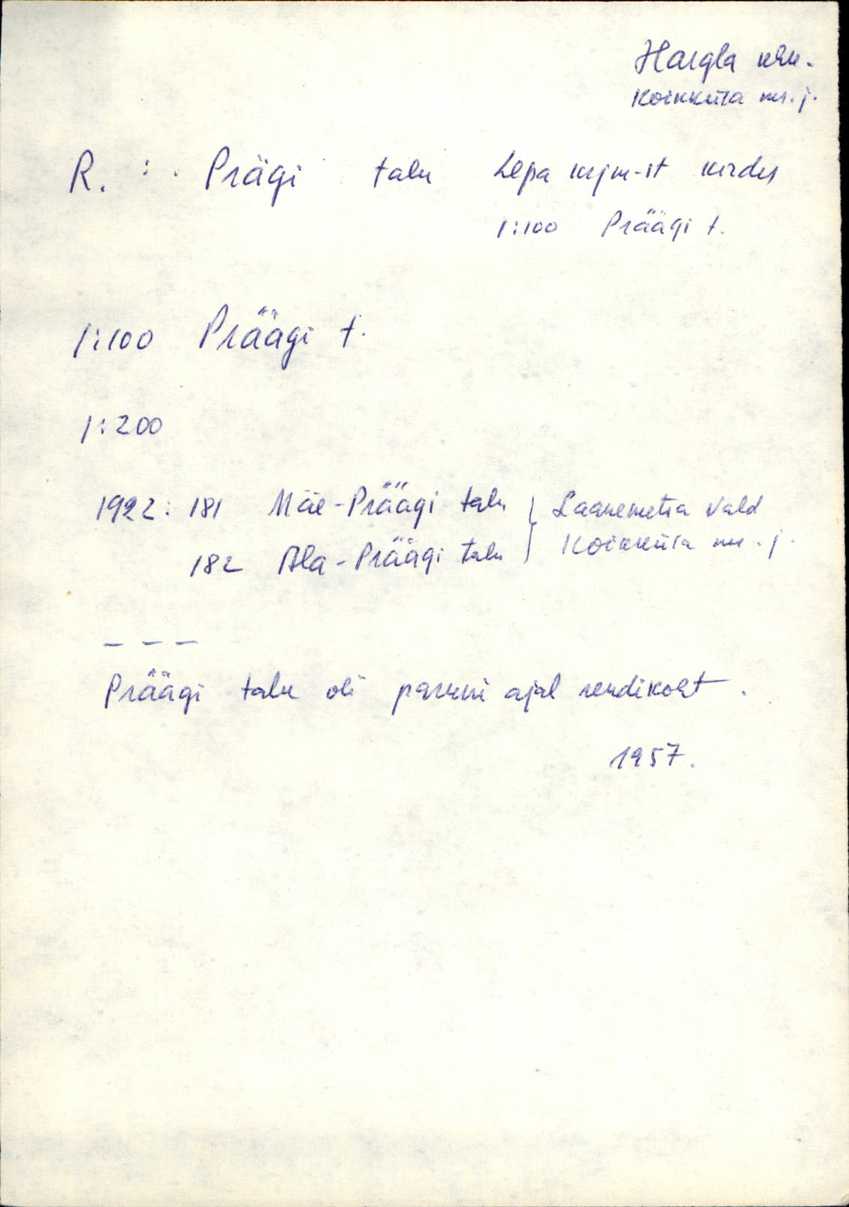 Hargla khk.
Koikküla ms. j.
R. : . Prägi talu Lepa krjm-st kirdes
1:100 Präägi t.
1:100 Präägi t.
1:200
1922: 181 Mäe-Präägi talu } Laanemetsa vald
182 Ala-Präägi talu } Koikküla ms. j.
– – –
Präägi talu oli paruni ajal rendikoht.
1957.